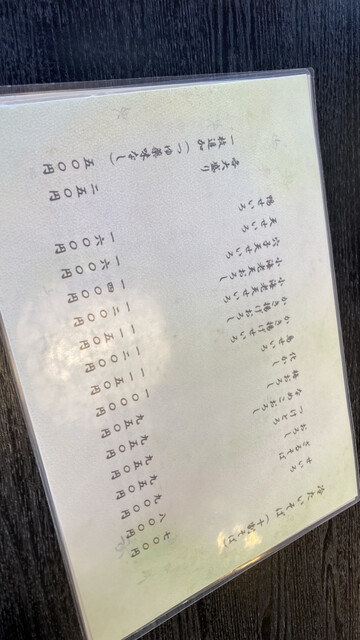 冷たいそば（十割そば）
せいろ 七〇〇円
ざるそば 八〇〇円
おろし 九〇〇円
つけとろ 九五〇円
なめこおろし 九五〇円
梅おろし 九五〇円
化かし 九五〇円
鳥せいろ
かき揚げせいろ
かき揚げおろし
小海老天せいろ
小海老天おろし 一二〇〇円
穴子天せいろ 一四〇〇円
天せいろ 一六〇〇円
鴨せいろ 一六〇〇円
各大盛り 二五〇円
一枚追加（つゆ薬味なし） 五〇〇円